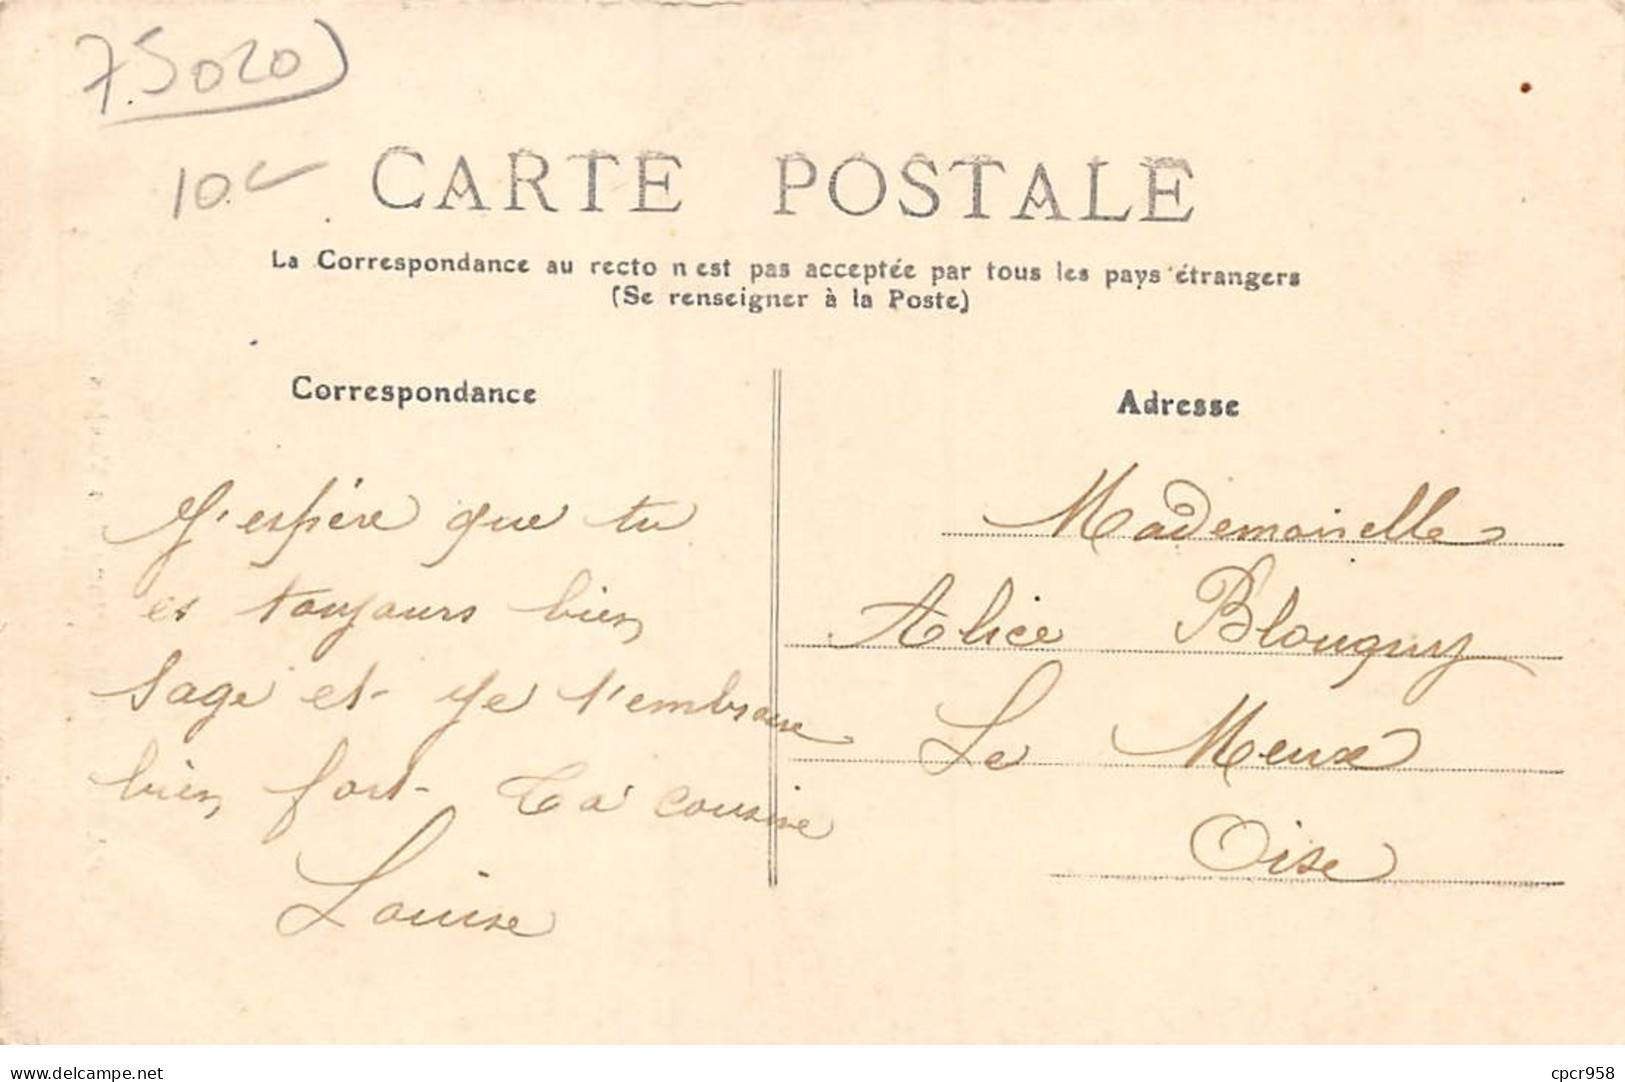 75020
10
CARTE POSTALE
La Correspondance au recto n'est pas acceptée par tous les pays étrangers
(Se renseigner à la Poste)
Correspondance
Adresse
J'espère que tu
es toujours bien
sage et je t'embrasse
bien fort Ta cousine
Louise
Mademoiselle
Alice Blougny
Le Meux
Oise
www.delcampe.net
cpcr958